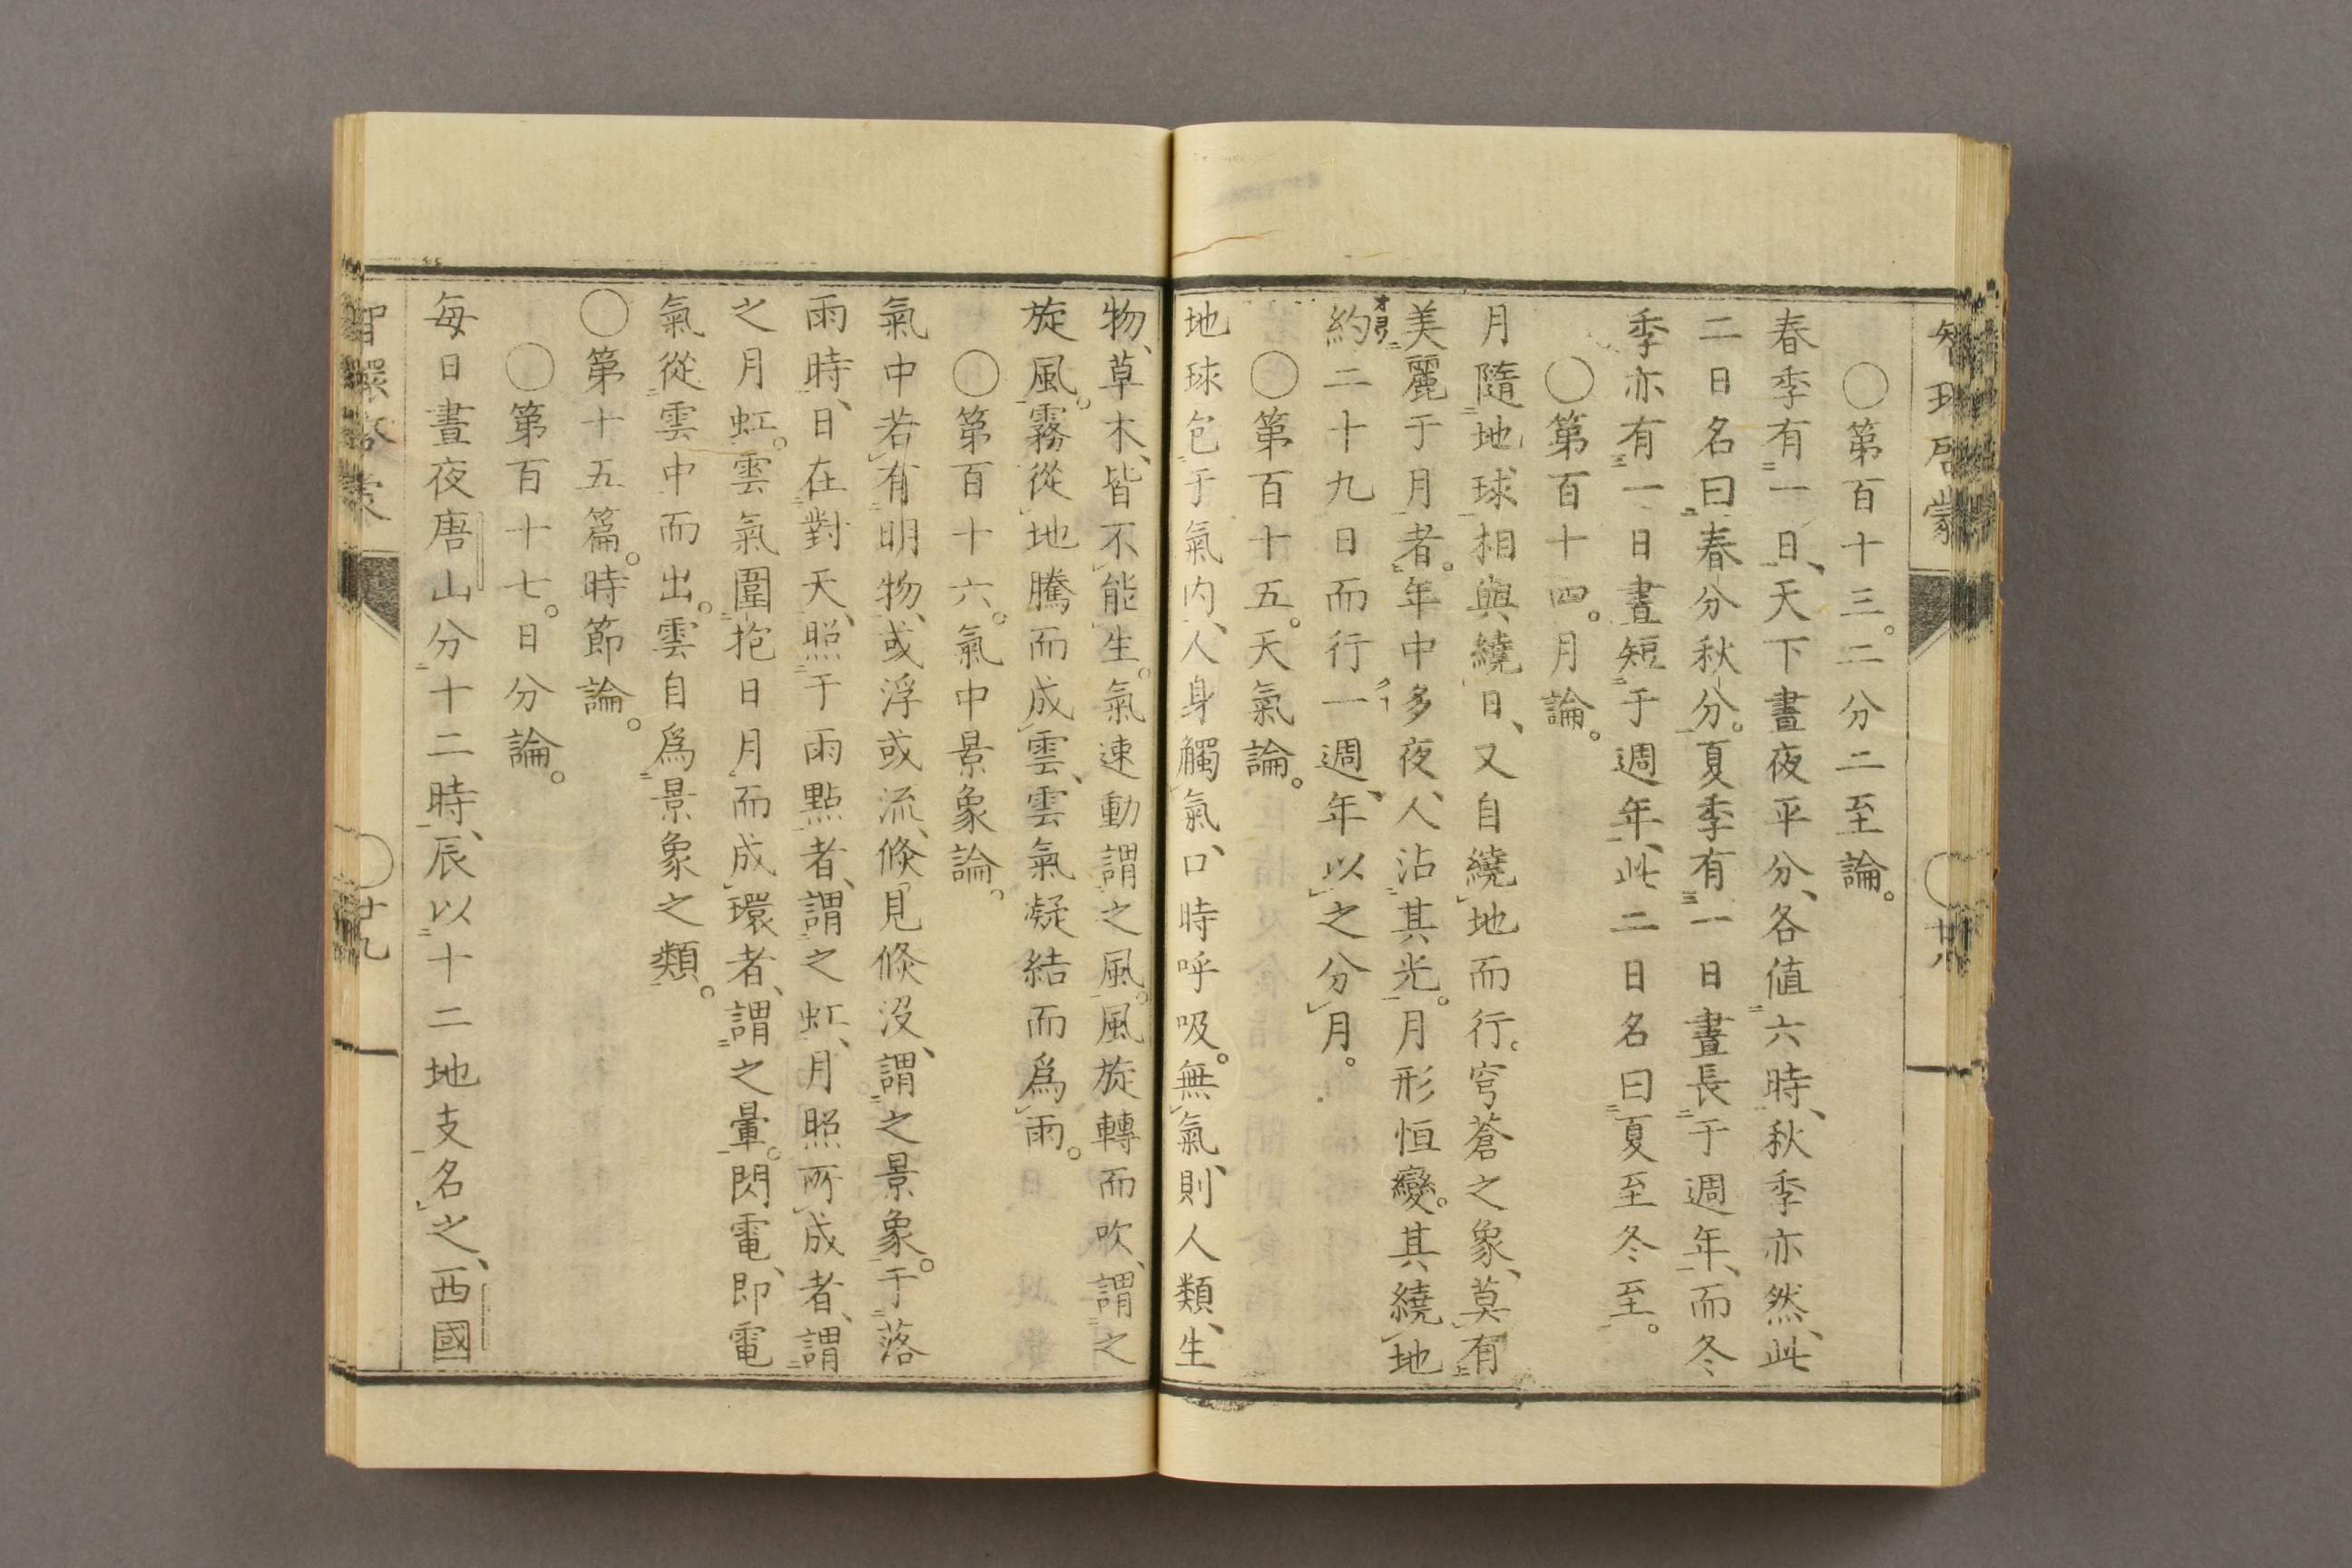 智環啓蒙
〇廿八
〇第百十三。二分二至論。
春季有一日、天下晝夜平分、各值六時、秋季亦然、此
二日名曰春分秋分。夏季有一日晝長于週年、而冬
季亦有一日晝短于週年、此二日名曰夏至冬至。
〇第百十四。月論。
月隨地球相與繞日、又自繞地而行。穹蒼之象、莫有
美麗于月者。年中多夜、人沾其光。月形恒變。其繞地
約二十九日而行一週、年以之分月。
〇第百十五。天氣論。
地球包于氣內、人身觸氣、口時呼吸。無氣、則人類、生
物、草木、皆不能生。氣速動謂之風。風旋轉而吹、謂之
旋風。霧從地騰而成雲、雲氣凝結而爲雨。
〇第百十六。氣中景象論。
氣中若有明物、或浮或流、倏見倏沒、謂之景象。于落
雨時、日在對天、照于雨點者、謂之虹、月照所成者、謂
之月虹。雲氣圍抱日月而成環者、謂之暈。閃電、即電
氣從雲中而出。雲自爲景象之類。
〇第十五篇。時節論。
〇第百十七。日分論。
每日晝夜唐山分十二時、辰以十二地支名之、西國
智環啓蒙
〇廿九